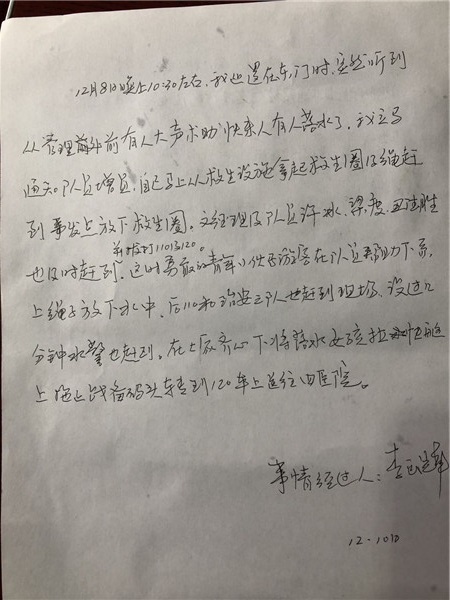 12月8日晚上10:30左右,我巡逻在东门时,突然听到
从管理前有人大声求助快来人有人落水了。我立马
通知队员增员,自己马上从救生设施拿起救生圈及绳赶
到事发点放下救生圈。文经理及队员许冰、梁度、胜
并拨打110 120。
也及时赶到。这时勇敢的青年小伙子游客在队员帮助下系
上绳子放下水中,后110和治安队也赶到现场,没过几
分钟水警也赶到。在大家齐心下将落水女孩拉艇
上拖上战备码头转到120车上送往医院。
事情经过人:李
12-10日